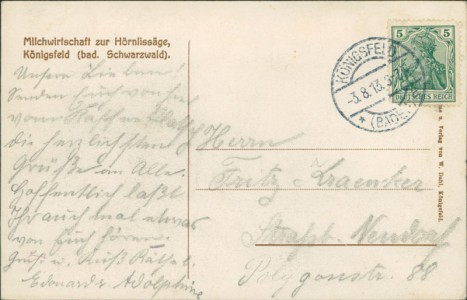 Milchwirtschaft zur Hörnlissäge,
Königsfeld (bad. Schwarzwald).
Unsere Lieben!
Senden Euch von hier
vom
die herzlichsten
Grüße an Alle.
Hoffentlich laßt
Ihr auch mal etwas
von Euch hören.
Gruß u. Kuß
Edouard u. Adolphine
KÖNIGSFELD
-3.8.13.
* (BADEN)
5 5
DEUTSCHES REICH
Herrn
Fritz Kraenker
Straßb. Neudorf
Polygonstr. 88
u. Verlag von W. Dohl, Königsfeld.